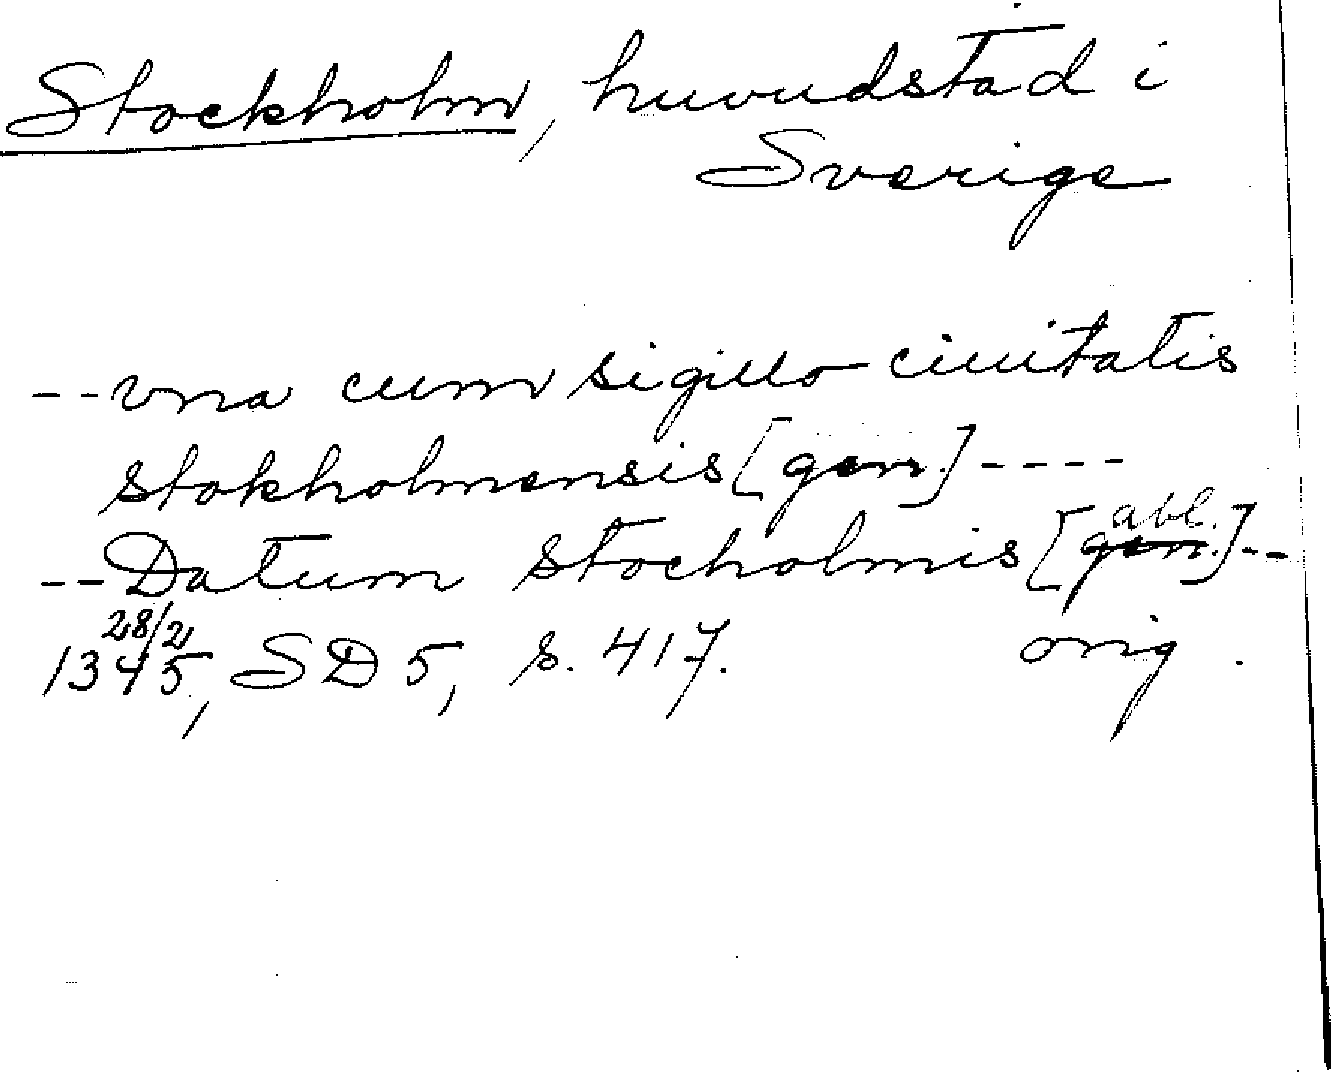 Stockholm, huvudstad i
Sverige
--vna cum sigillo ciuitatis
stokholmensis [gen.]----
--Datum stocholmis [gen. abl.]--
28/2
1345, SD 5, s. 417. orig.